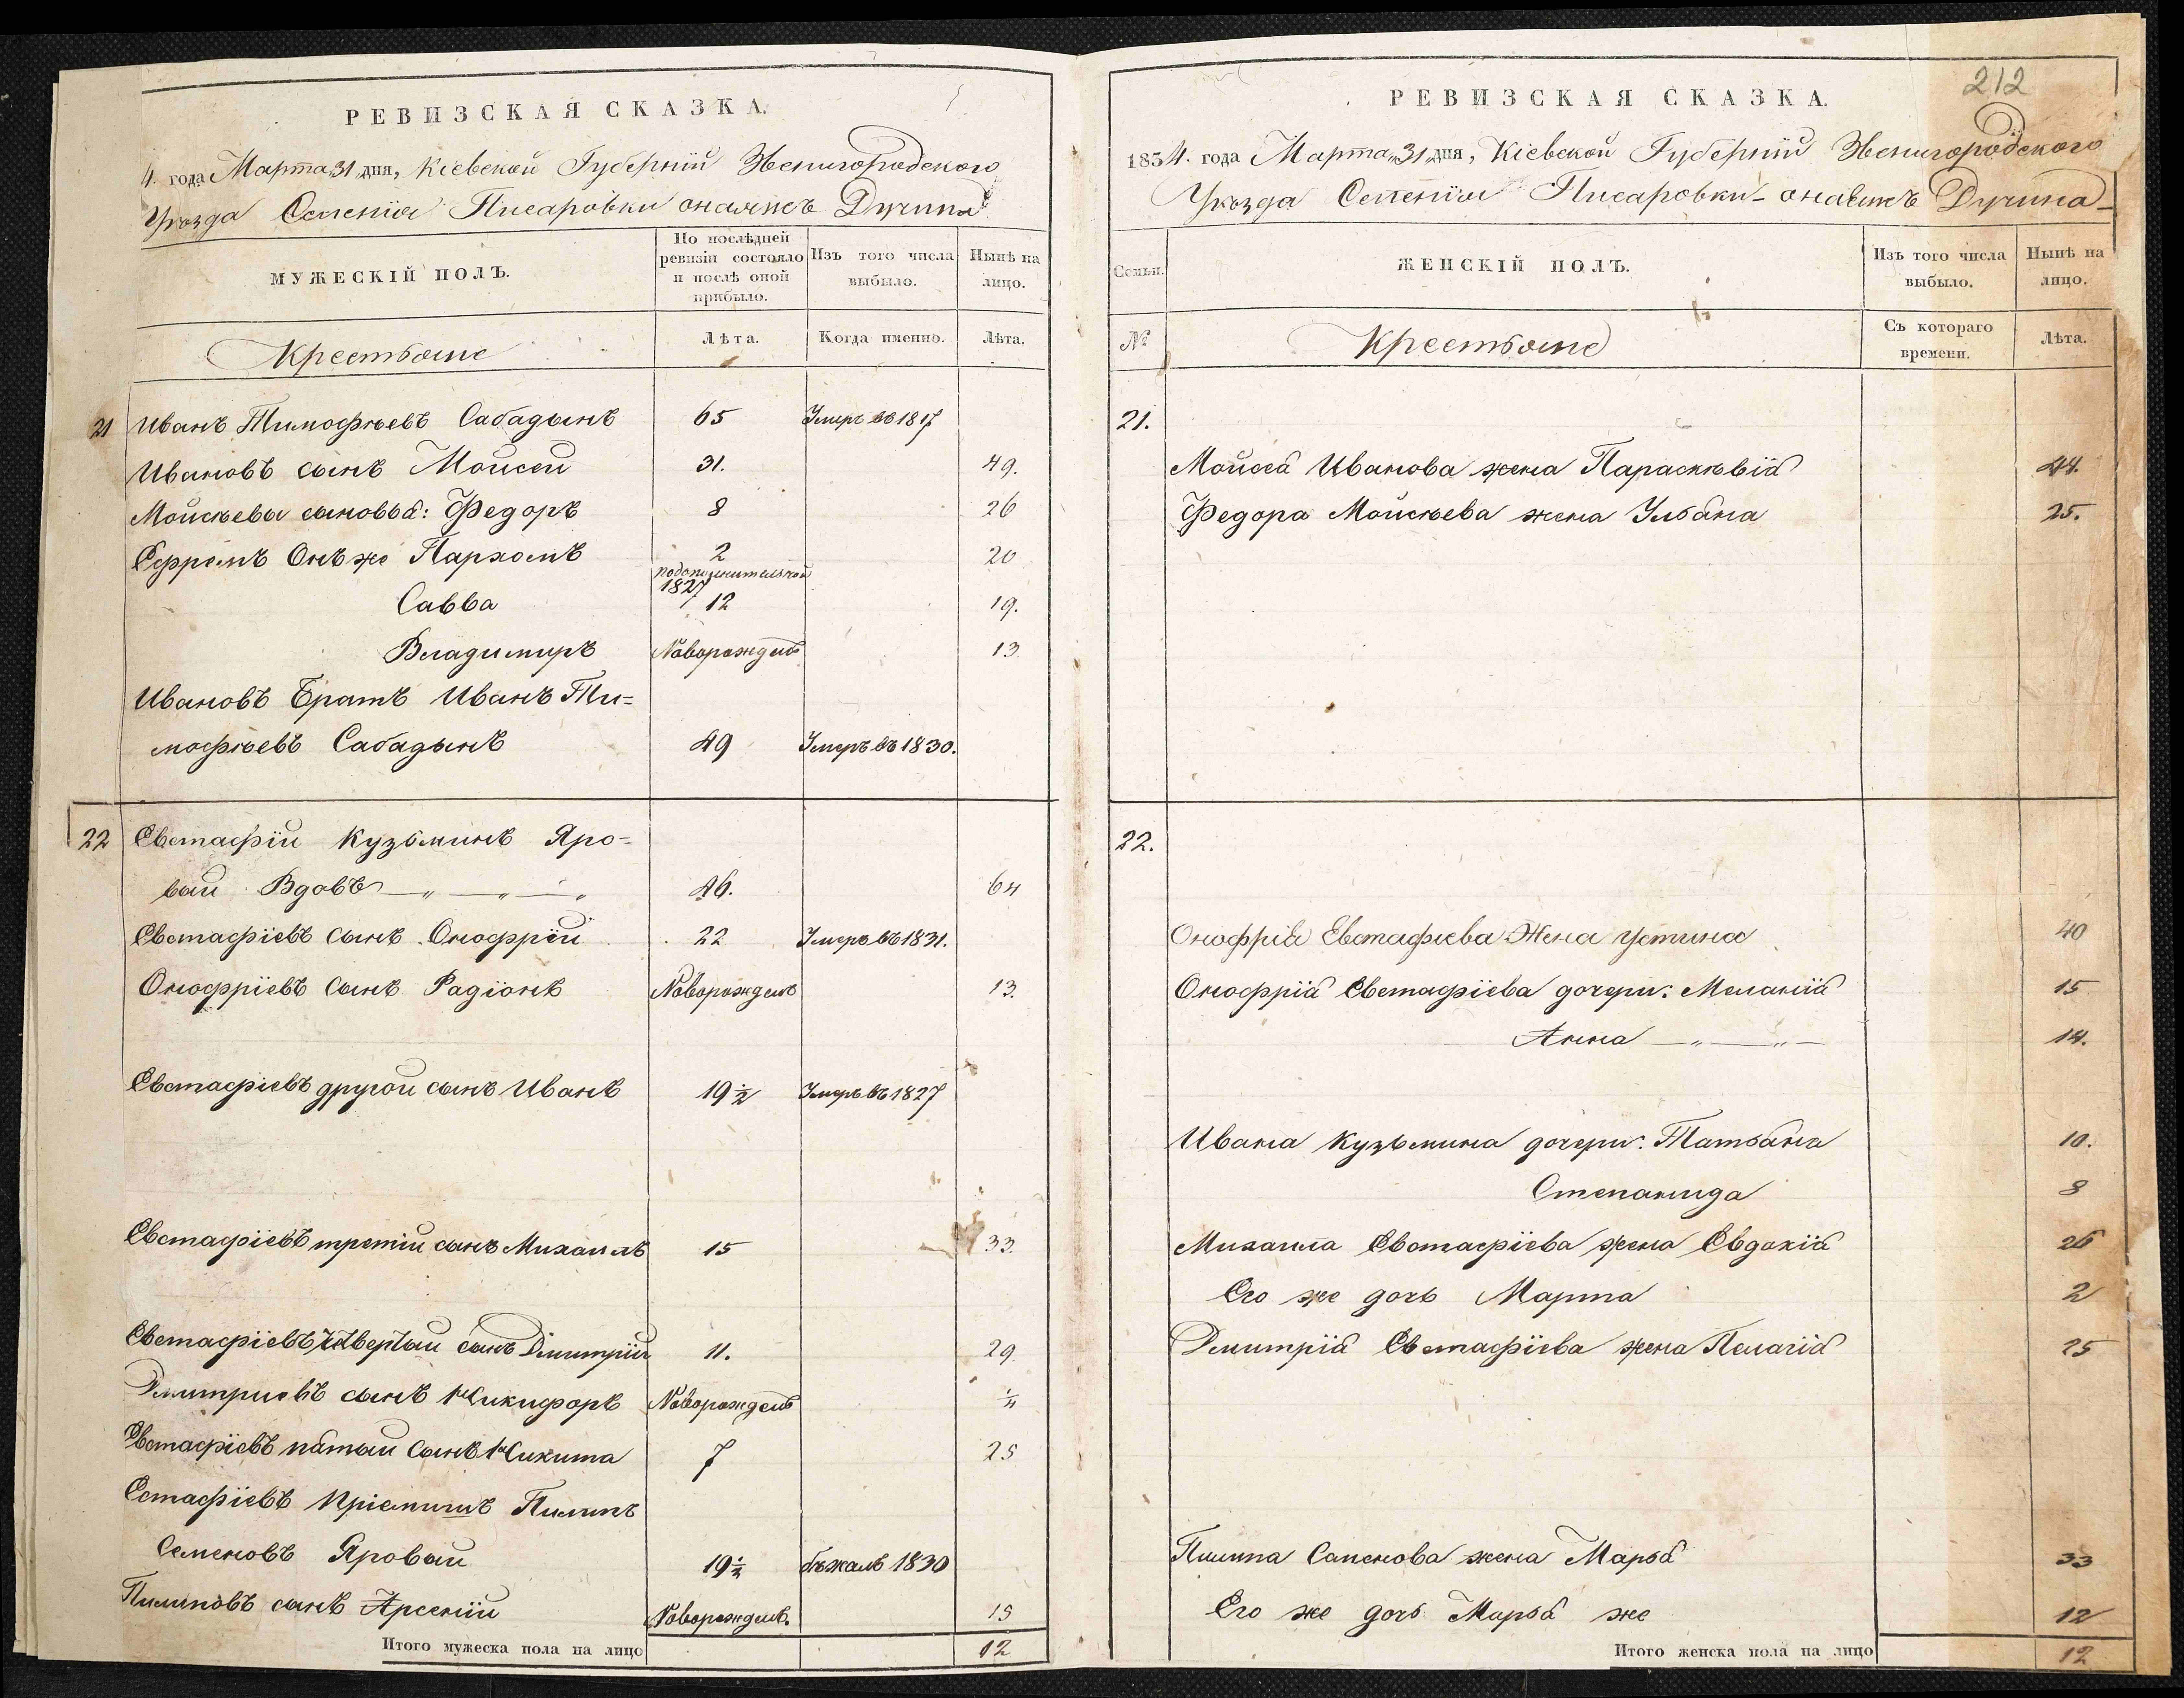 РЕВИЗСКАЯ СКАЗКА.
4. года Марта 31 дня, Кіевской Губерніи Звенигородского
Уѣзда Селенія Писаровки онаяжъ
МУЖЕСКІЙ ПОЛЪ.
По послѣдней ревизіи состояло и послѣ оной прибыло.
Изъ того числа выбыло.
Нынѣ на лицо.
Крестьяне
Лѣта.
Когда именно.
Лѣта.
21 Иванъ Тимофѣевъ Сабадынъ 65 Умеръ въ 1817
Ивановъ сынъ Моисей 31. 49.
Моисѣевы сыновья: Федоръ 8 26
Ефремъ Онъ же Пархомъ 2 20
подополнительной
1827
Савва 12 19.
Владимиръ Новорожденъ 13
Ивановъ Братъ Иванъ Ти=
мофѣевъ Сабадынъ 49 Умеръ въ 1830.
22 Евстафій Кузьминъ Яро=
вый Вдовъ — „ — „ — „ 46. 64
Евстафіевъ сынъ Онофрій 22 Умеръ въ 1831.
Онофріевъ сынъ Радіонъ Новорожденъ 13.
Евстафіевъ другой сынъ Иванъ 19 ½ Умеръ въ 1827
Евстафіевъ третій сынъ Михаилъ 15 33.
Евстафіевъ четвертый сынъ Дмитрій 11. 29
Дмитриевъ сынъ Никифоръ Новорожденъ
Евстафіевъ пятый сынъ Никита 7 25
Естафіевъ пріемышъ Пилипъ
Семеновъ Яровый 19 ½ бѣжалъ 1830
Пилиповъ сынъ Арсеній Новорожденъ. 15
Итого мужеска пола на лицо 12
212
РЕВИЗСКАЯ СКАЗКА.
1834. года Марта 31 дня, Кіевской Губерніи Звенигородского
Уѣзда Селенія Писаровки онаяжъ
Семьи.
ЖЕНСКІЙ ПОЛЪ.
Изъ того числа выбыло.
Нынѣ на лицо.
№
Крестьяне
Съ котораго времени.
Лѣта.
21.
Моисея Иванова жена Параскѣвія 44.
Федора Моисѣева жена Ульяна 25.
22.
Онофрія Евстафиева Жена Устина 40
Онофрія Евстафіева дочери: Меланія 15
Анна — „ — „ — 14.
Ивана Кузьмина дочери: Татьяна 10.
Степанида 8
Михаила Евстафіева жена Евдокія 26
Его же дочь Марта 2
Дмитрія Евстафіева жена Пелагія 25
Пилипа Семенова жена Марья 33
Его же дочь Марья же 12
Итого женска пола на лицо 12